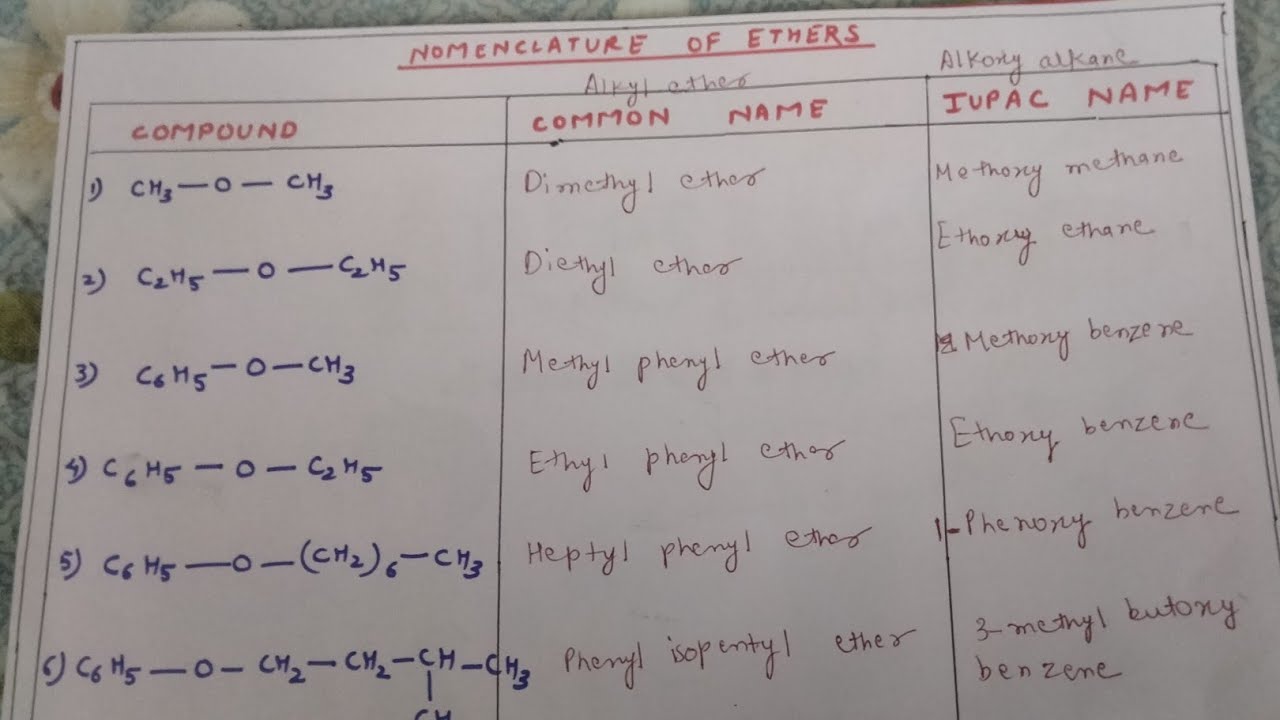 NOMENCLATURE OF ETHERS
Alkyl ether
Alkoxy alkane
COMPOUND
COMMON NAME
IUPAC NAME
1) CH₃ — O — CH₃
Dimethyl ether
Methoxy methane
2) C₂H₅ — O — C₂H₅
Diethyl ether
Ethoxy ethane
3) C₆H₅ — O — CH₃
Methyl phenyl ether
Methoxy benzene
4) C₆H₅ — O — C₂H₅
Ethyl phenyl ether
Ethoxy benzene
5) C₆H₅ — O — (CH₂)₆ — CH₃
Heptyl phenyl ether
1-Phenoxy benzene
6) C₆H₅ — O — CH₂ — CH₂ — CH — CH₃
|
CH
Phenyl isopentyl ether
3-methyl butoxy
benzene